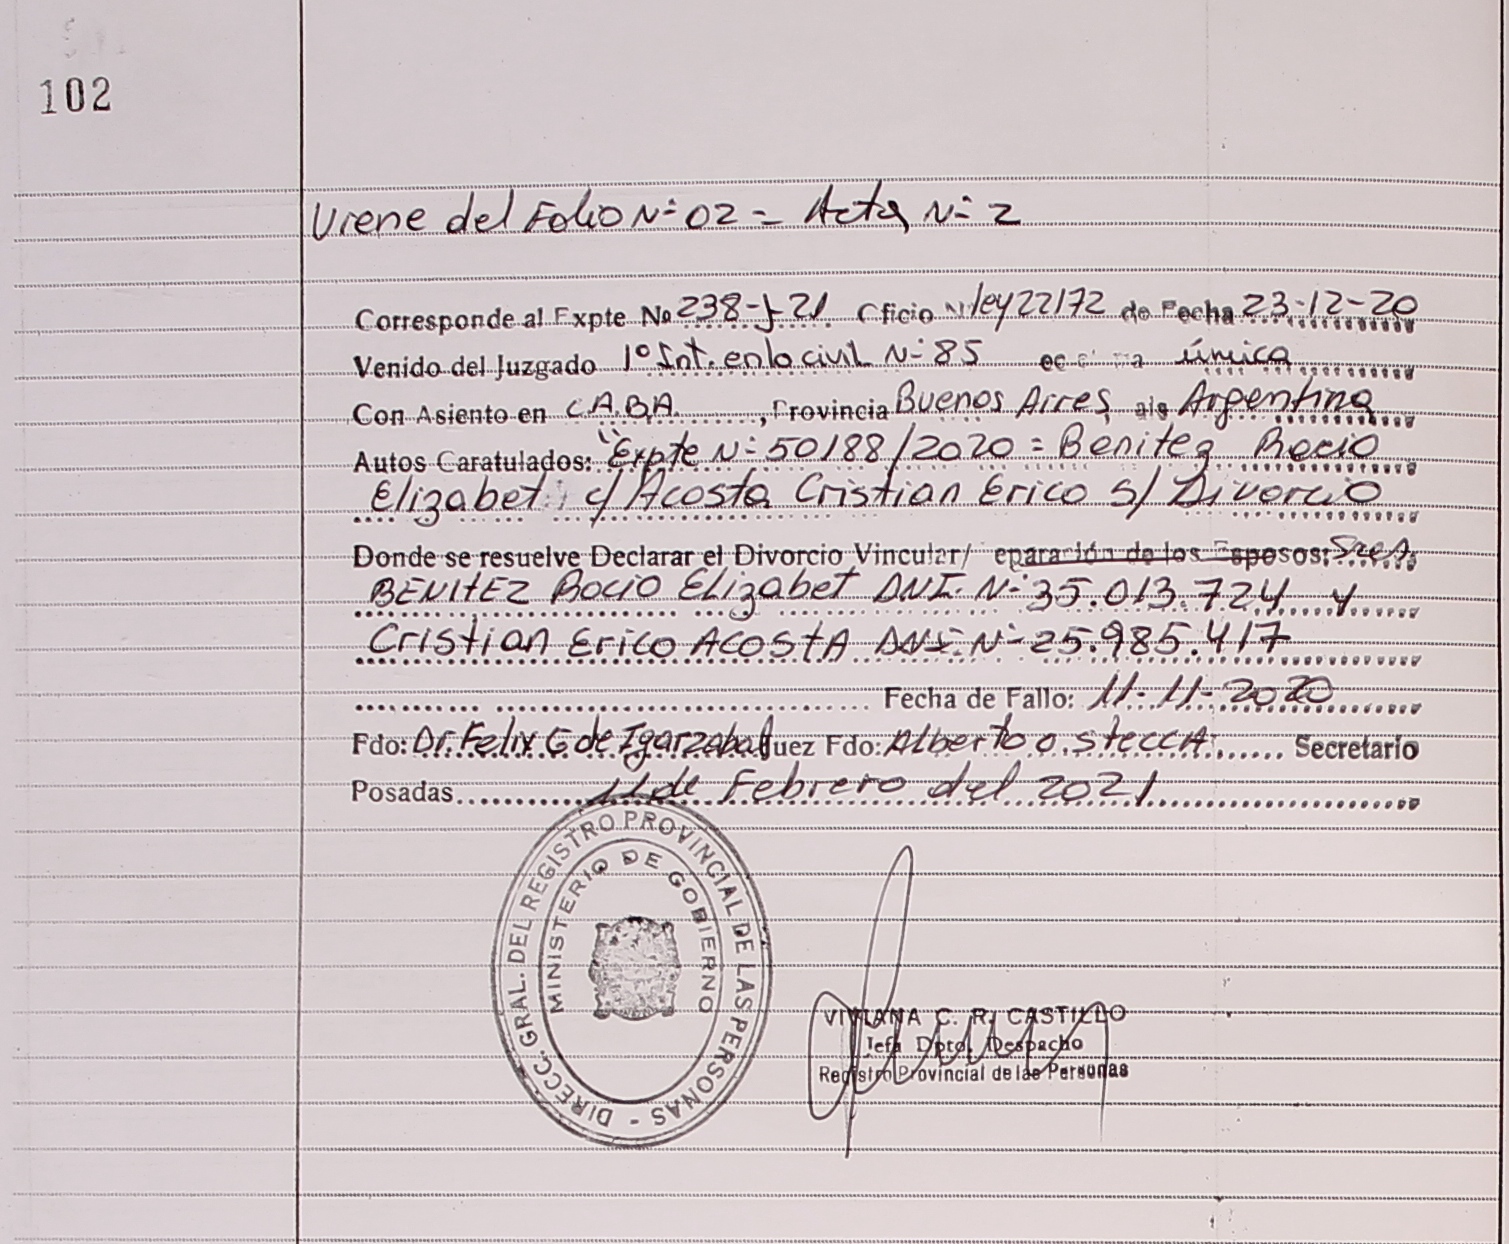 102
Viene del Folio Nº 02 = Acta Nº 2
Corresponde al Expte No 238-J-21 Oficio Nº ley 22172 de Fecha 23-12-20
Venido del Juzgado 1º Int. en lo civil Nº 85 única
Con Asiento en C.A.B.A. , Provincia Buenos Aires Argentina
Autos Caratulados: "Expte Nº 50188/2020 = Benitez Rocio
Elizabet c/ Acosta Cristian Erico s/ Divorcio
Donde se resuelve Declarar el Divorcio Vincular/ eparación de los Esposos: Sres.
BENITEZ Rocio Elizabet DNI. Nº 35.013.724 y
Cristian Erico Acosta DNI. Nº 25.985.417
Fecha de Fallo: 11-11-2020
Fdo: Dr. Felix G de Igarzabal Juez Fdo: Alberto O. Stecca Secretario
Posadas 11 de Febrero del 2021
DIRECC. GRAL. DEL REGISTRO PROVINCIAL DE LAS PERSONAS -
MINISTERIO DE GOBIERNO
VIVIANA C. R. CASTILLO
Jefa Dpto. Despacho
Registro Provincial de las Personas